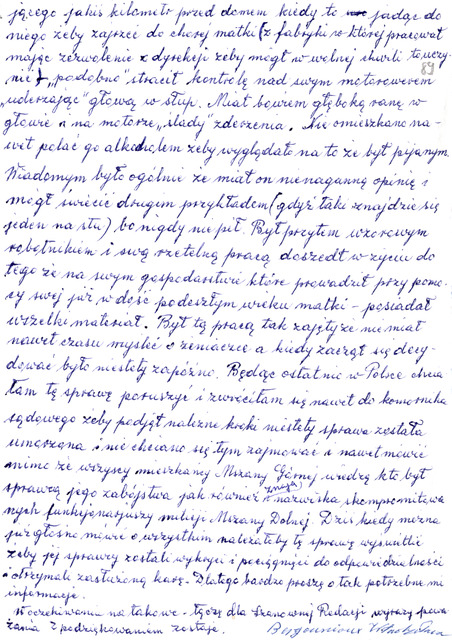 jącego jakiś kilometr przed domem kiedy to jadąc do
niego żeby zajrzeć do chorej matki (z fabryki w której pracował
mając zezwolenie z dyrekcji żeby mógł w wolnej chwili to uczy-
nić), „podobno” stracił kontrolę nad swym motorowerem
„uderzając” głową w słup. Miał bowiem głęboką ranę w
głowie a na motorze „ślady” zderzenia. Nie omieszkano na-
wet polać go alkoholem żeby wyglądało na to że był pijanym.
Wiadomym było ogólnie że miał on nienaganną opinię i
mógł świecić drugim przykładem (gdyż taki znajdzie się
jeden na stu) bo nigdy nie pił. Był przytem wzorowym
robotnikiem i swą rzetelną pracą doszedł w życiu do
tego że na swym gospodarstwie które prowadził przy pomo-
cy swej już w dość podeszłym wieku matki – posiadał
wszelki materiał. Był tą pracą tak zajęty że nie miał
nawet czasu myśleć o żeniaczce a kiedy zaczął się decy-
dować było niestety zapóźno. Będąc ostatnio w Polsce chcia-
łam tę sprawę poruszyć i zwróciłam się nawet do komornika
sądowego żeby podjął należne kroki niestety sprawa została
umorzona i nie chciano się tym zajmować a nawet mówić
mimo że wszyscy mieszkańcy Mszany Górnej wiedzą kto był
sprawcą jego zabójstwa jak również znają nazwiska skompromitowa-
nych funkcjonarjuszy milicji Mszany Dolnej. Dziś kiedy można
już głośno mówić o wszystkim należałoby tę sprawę wyświetlić
żeby jej sprawcy zostali wykryci i pociągnięci do odpowiedzialności
i otrzymali zasłużoną karę. Dlatego bardzo proszę o tak potrzebne mi
informacje.
W oczekiwaniu na takowe – łączę dla Szanownej Redakcji wyrazy powa-
żania i z podziękowaniem zostaję.